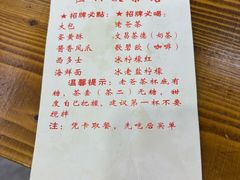 ★ 招牌必點: ★ 招牌必喝:
大包 老爸茶
蛋黄酥 文昌茶德(奶茶)
酱香凤爪 歌碧欧(咖啡)
西多士 冰柠檬红
海鲜面 冰老盐柠檬
温馨提示: 老爸茶杯底有
糖, 茶壶(茶二)无糖, 甜
度自己把握, 建议第一杯不要
搅拌
注: 凭卡取餐, 先吃后买单